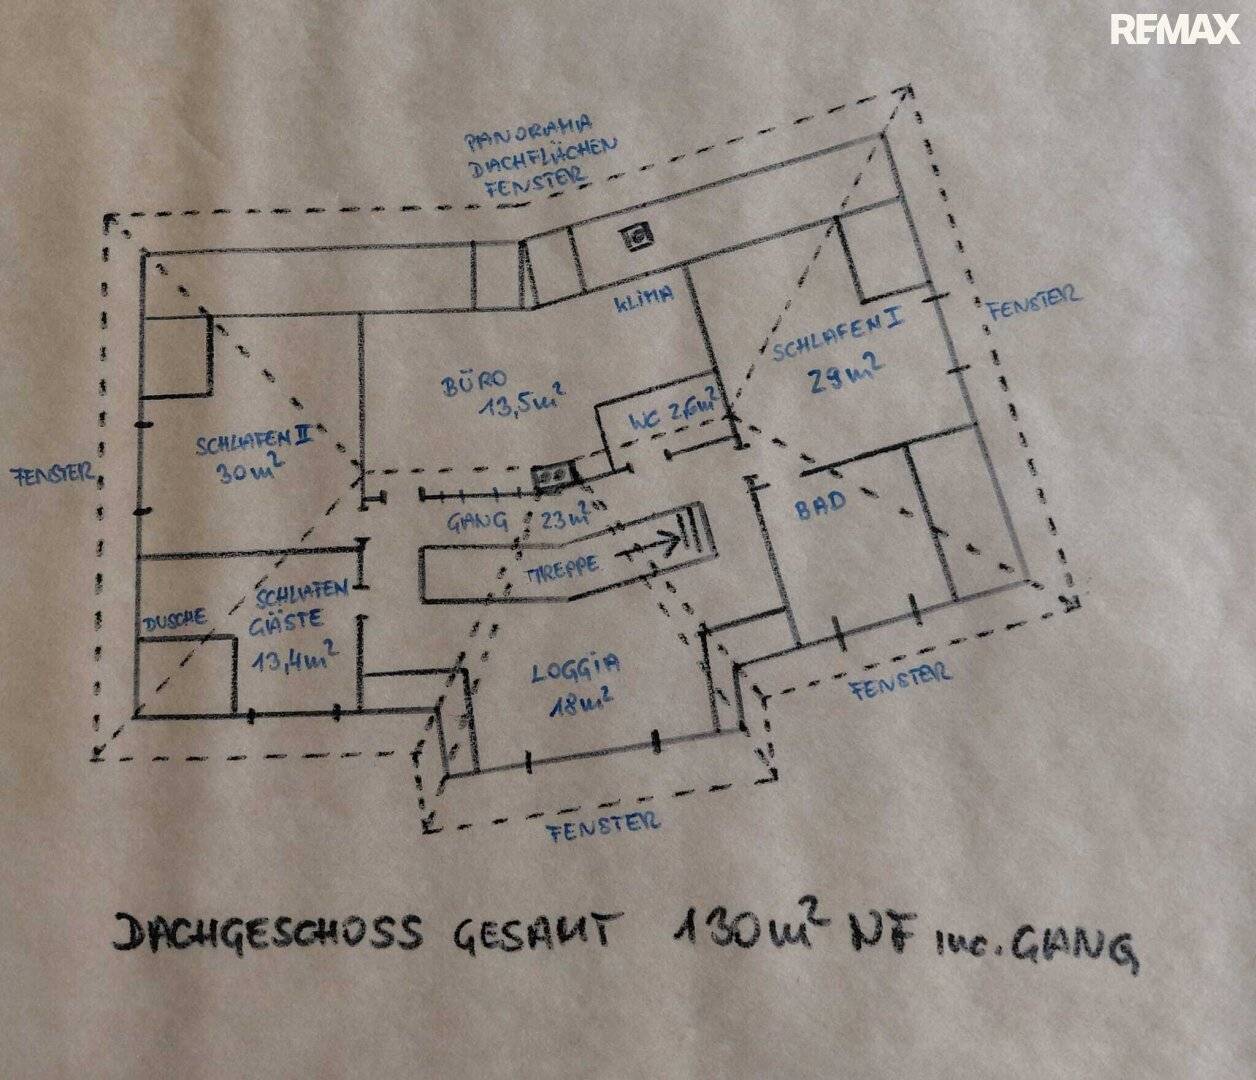 REMAX
PANORAMA
DACHFLÄCHEN
FENSTER
KLIMA
FENSTER
SCHLAFEN I
29m²
BÜRO
13,5m²
WC 2,6m²
SCHLAFEN II
30m²
FENSTER
GANG 23m²
BAD
TREPPE
SCHLAFEN
GÄSTE
13,4m²
DUSCHE
LOGGIA
18m²
FENSTER
FENSTER
DACHGESCHOSS GESAMT 130m² NF inc. GANG